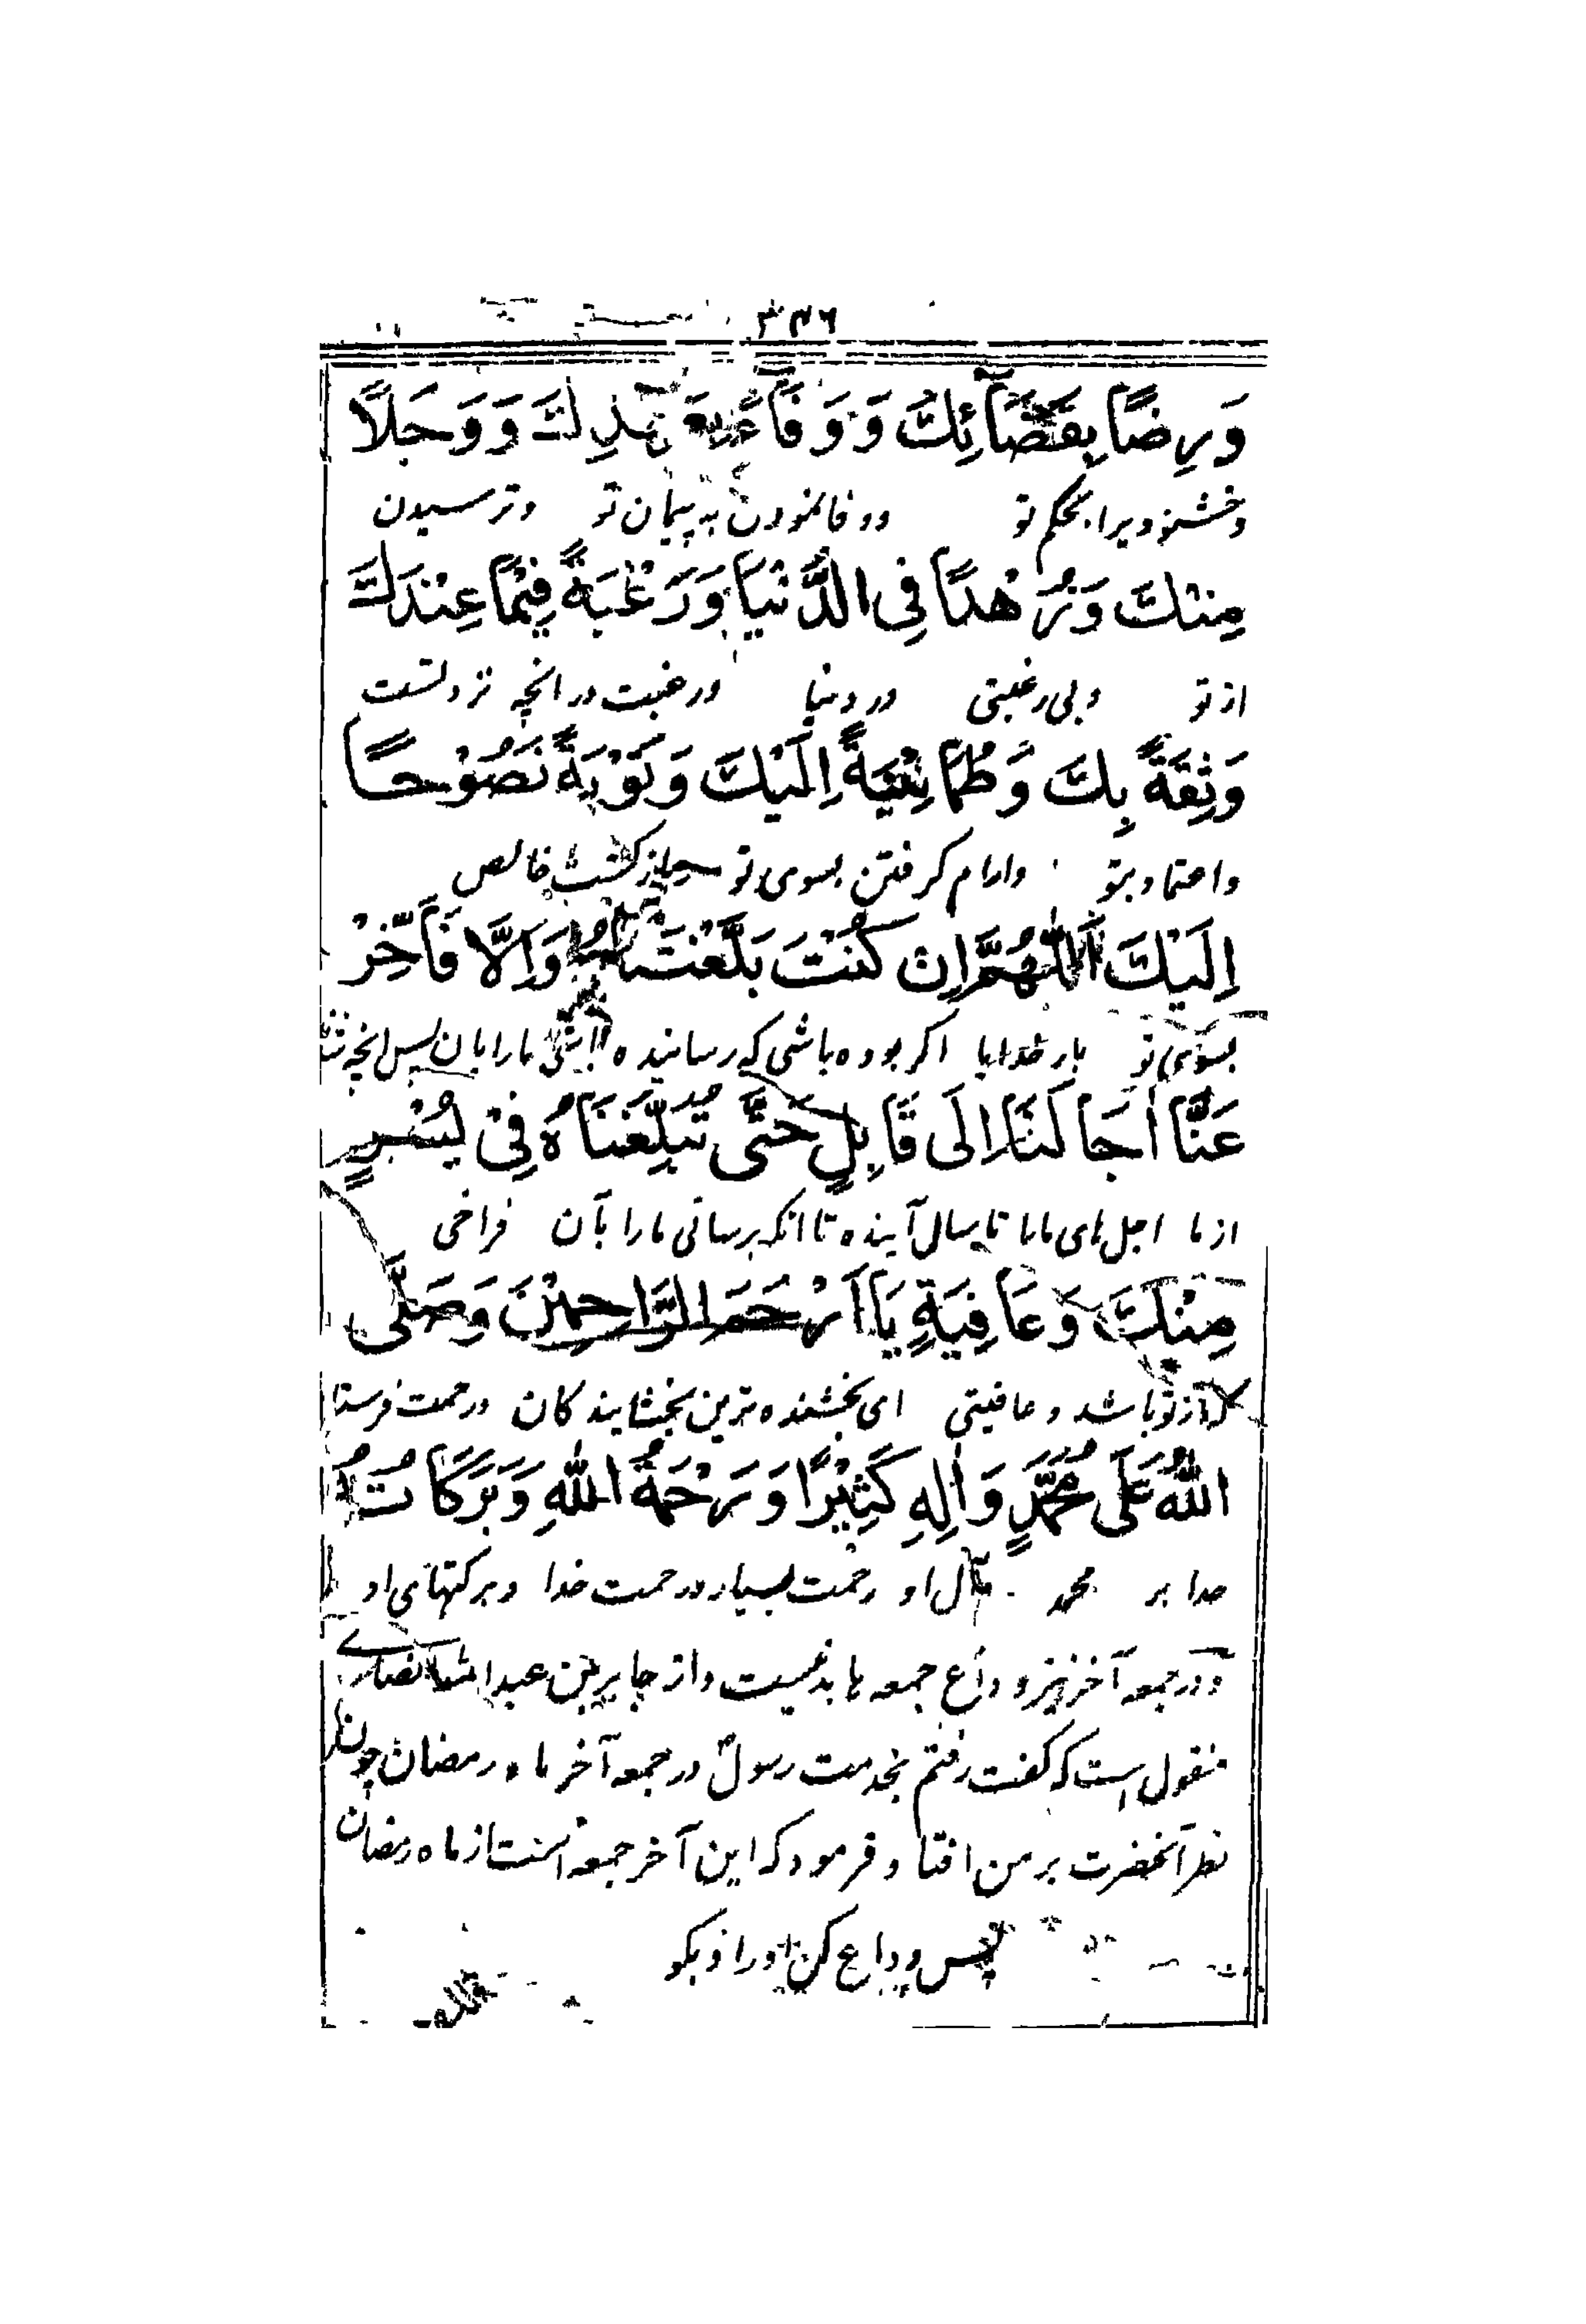 ۳۴۶
وَرِضًا بِقَضَآئِكَ وَوَفَآءً بِعَهْدِكَ وَوَجَلًا
وخشنودیرا بحکم تو ووفا نمودن به پیمان تو وترسیدن
مِنْكَ وَزُهْدًا فِی الدُّنْیَا وَرَغْبَةً فِیْمَا عِنْدَكَ
از تو وبی رغبتی در دنیا ورغبت در انچه نزد تست
وَثِقَةً بِكَ وَطُمَانِیْنَةً اِلَیْكَ وَتَوْبَةً نَصُوْحًا
واعتماد بتو وارام گرفتن بسوی تو خالص
اِلَیْكَ اَللّٰهُمَّ اِنْ كُنْتَ بَلَّغْتَنَاهُ وَاِلَّا فَاَخِّرْ
بسوی تو بار خدایا اگر بوده باشی که رسانیده باشی مارا بان پس
عَنَّا اٰجَالَنَا اِلٰی قَابِلٍ حَتّٰی تُبَلِّغَنَاهُ فِیْ یُسْرٍ
از ما اجل های مارا تا بسال آینده تا انکه برسانی مارا بآن فراخی
مِنْكَ وَعَافِیَةٍ یَا اَرْحَمَ الرَّاحِمِیْنَ وَصَلَّی
که از تو باشد و عافیتی ای بخشنده ترین بخشایندگان ورحمت فرستد
اللّٰهُ عَلٰی مُحَمَّدٍ وَاٰلِهِ كَثِیْرًا وَرَحْمَةُ اللّٰهِ وَبَرَكَاتُهُ
خدا بر محمد آل او رحمت بسیار ورحمت خدا وبرکتهای او
ودر جمعه آخر نیز وداع جمعه ها بد نیست واز جابر بن عبدالله انصاری
منقول است که گفت رفتم بخدمت رسولؐ در جمعه آخر ماه رمضان چون
نظر آنحضرت بر من افتاد وفرمود که این آخر جمعه است از ماه رمضان
پس وداع کن اورا وبگو
اللهم